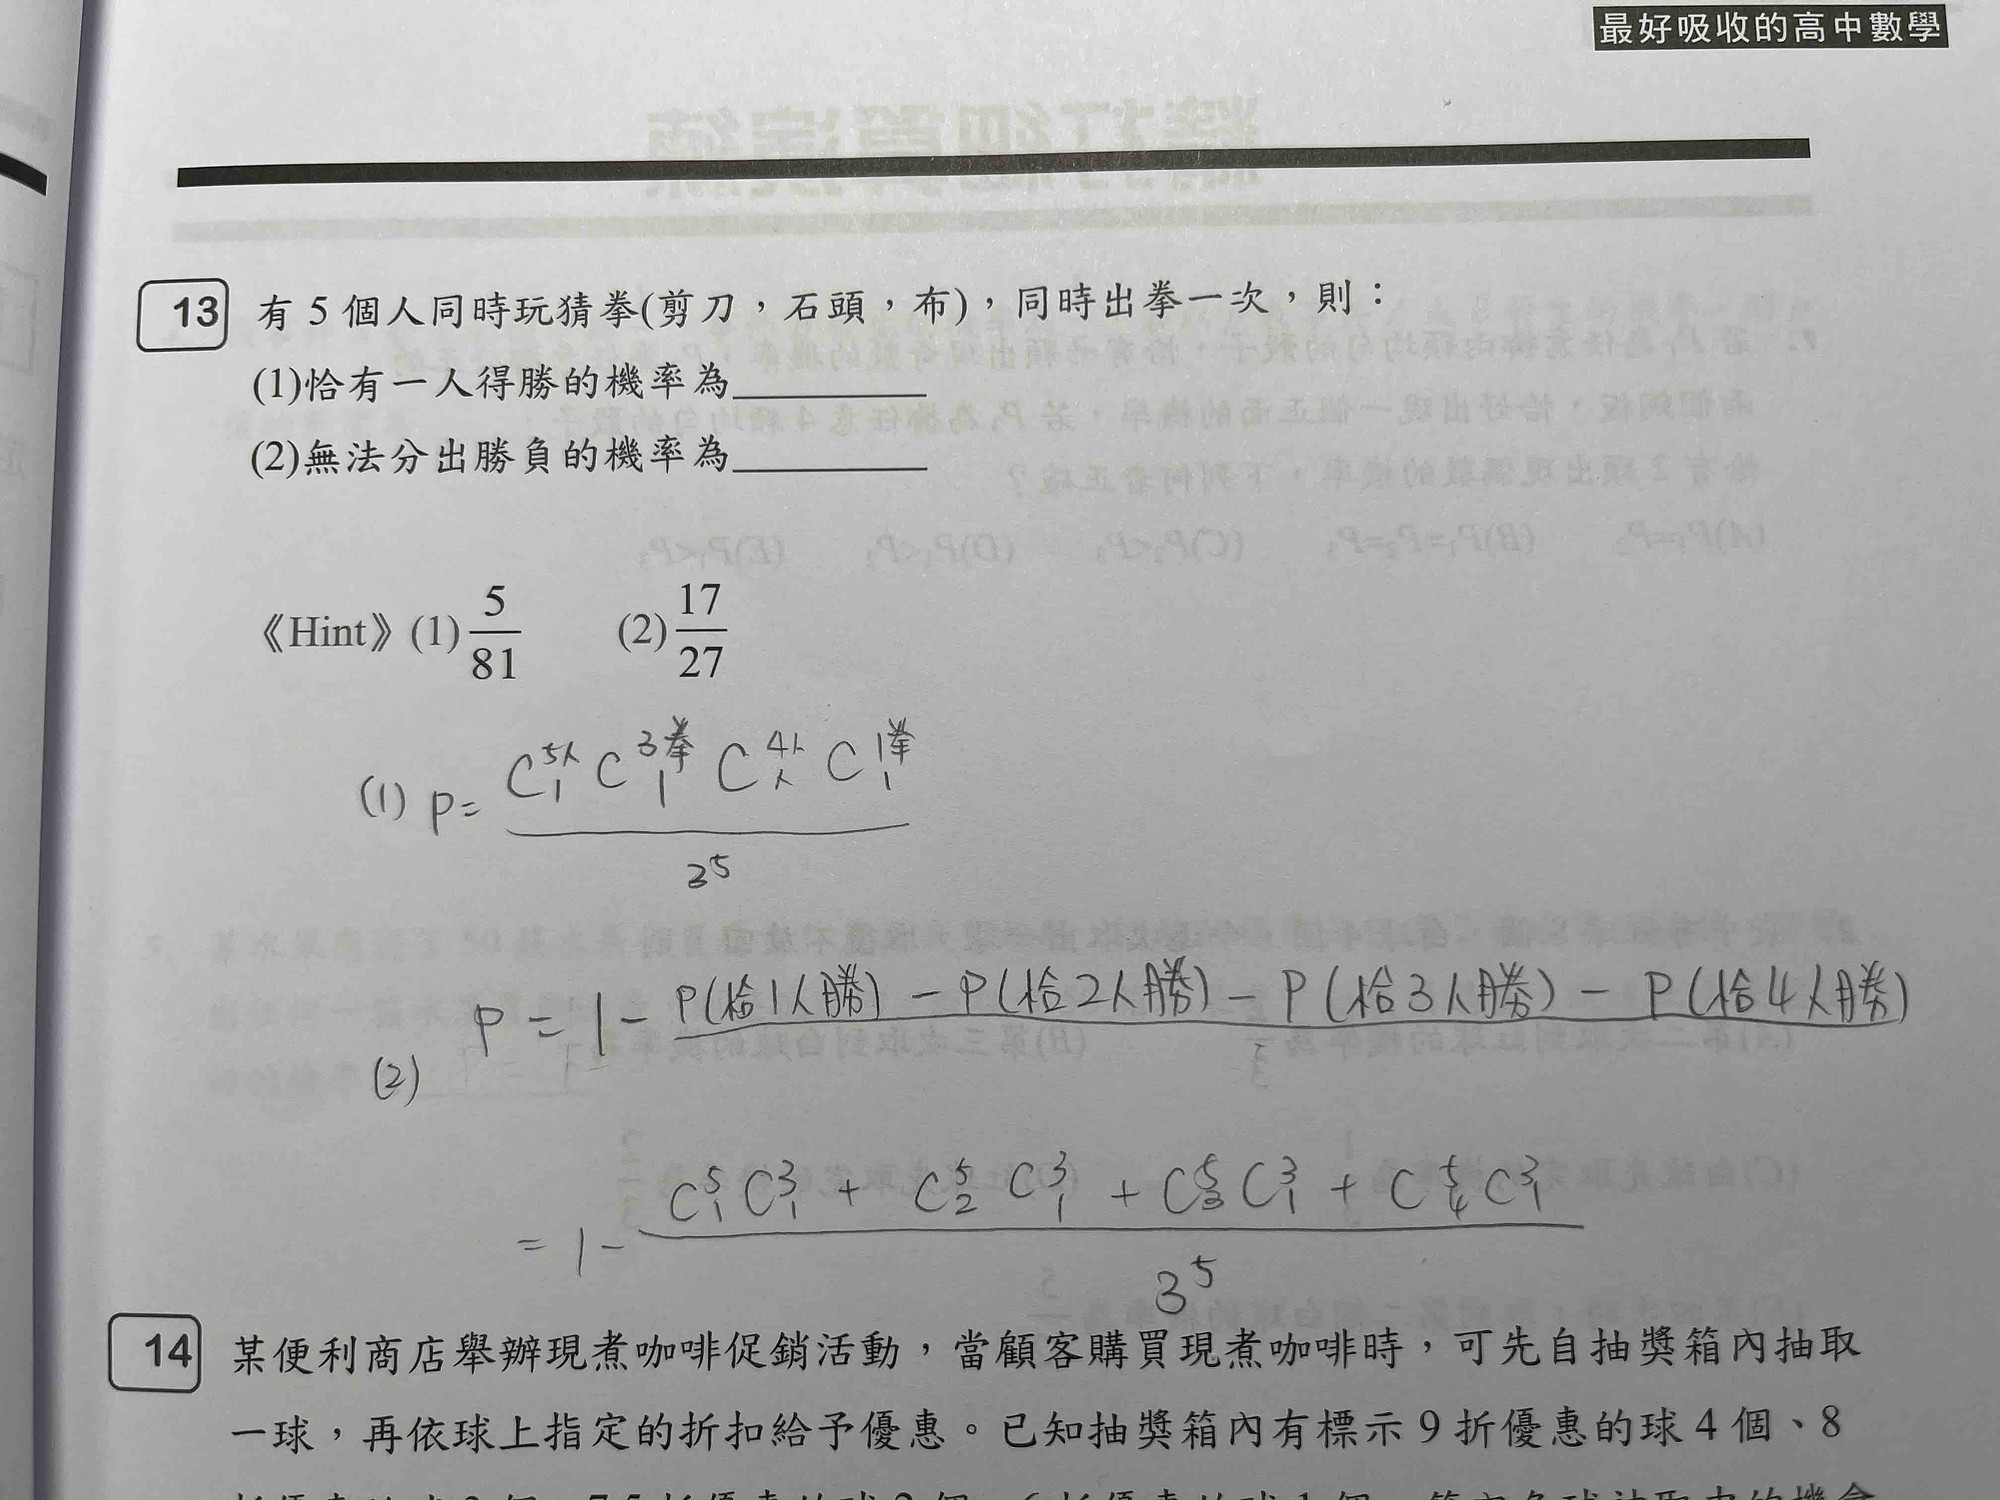 最好吸收的高中數學
13 有 5 個人同時玩猜拳(剪刀，石頭，布)，同時出拳一次，則：
(1)恰有一人得勝的機率為________
(2)無法分出勝負的機率為________
《Hint》(1) 5/81 (2) 17/27
(1) P = C^{5人}_1 C^{3拳}_1 C^{4人}_人 C^{1拳}_1 / 3^5
(2) P = 1 - P(恰1人勝) - P(恰2人勝) - P(恰3人勝) - P(恰4人勝)
= 1 - (C^5_1 C^3_1 + C^5_2 C^3_1 + C^5_3 C^3_1 + C^5_4 C^3_1) / 3^5
14 某便利商店舉辦現煮咖啡促銷活動，當顧客購買現煮咖啡時，可先自抽獎箱內抽取
一球，再依球上指定的折扣給予優惠。已知抽獎箱內有標示 9 折優惠的球 4 個、8